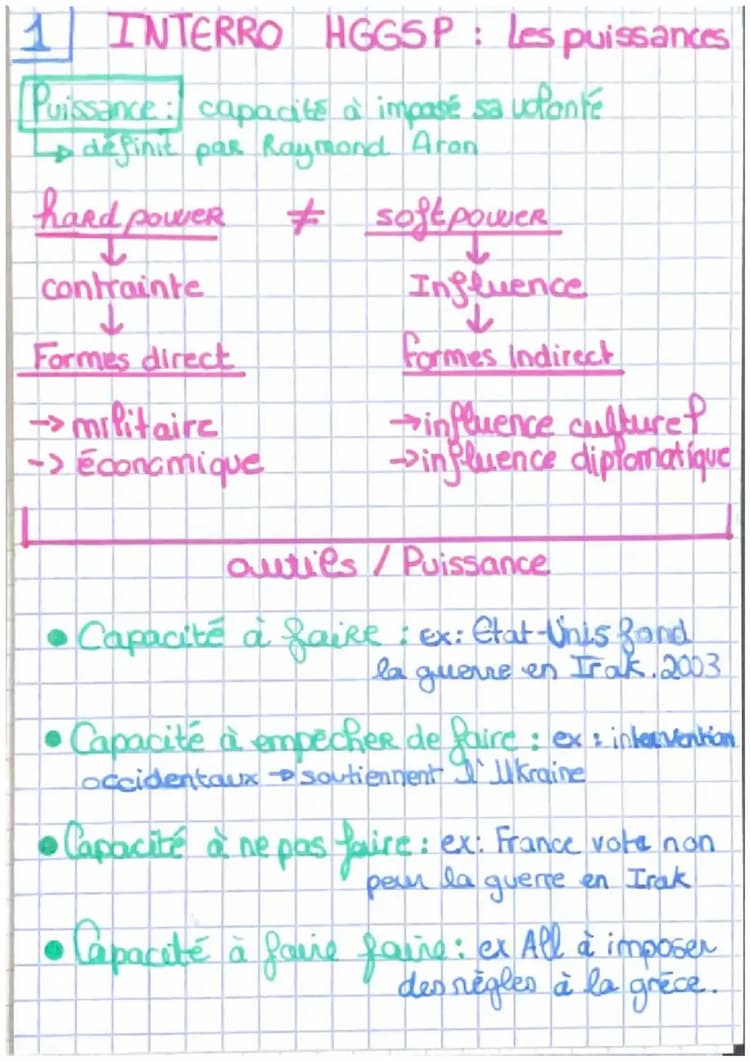 1 INTERRO HGGSP : Les puissances
Puissance : capacité à imposé sa volonté
↳ définit par Raymond Aron
hard power ≠ soft power
↓ ↓
contrainte Influence
↓ ↓
Formes direct formes indirect
→ militaire → influence culturel
-> économique → influence diplomatique
outils / Puissance
• Capacité à faire : ex: Etat-Unis fond
la guerre en Irak. 2003
• Capacité à empêcher de faire : ex : intervention
occidentaux → soutiennent l'Ukraine
• Capacité à ne pas faire : ex: France vote non
pour la guerre en Irak
• Capacité à faire faire : ex All à imposer
des règles à la grèce.